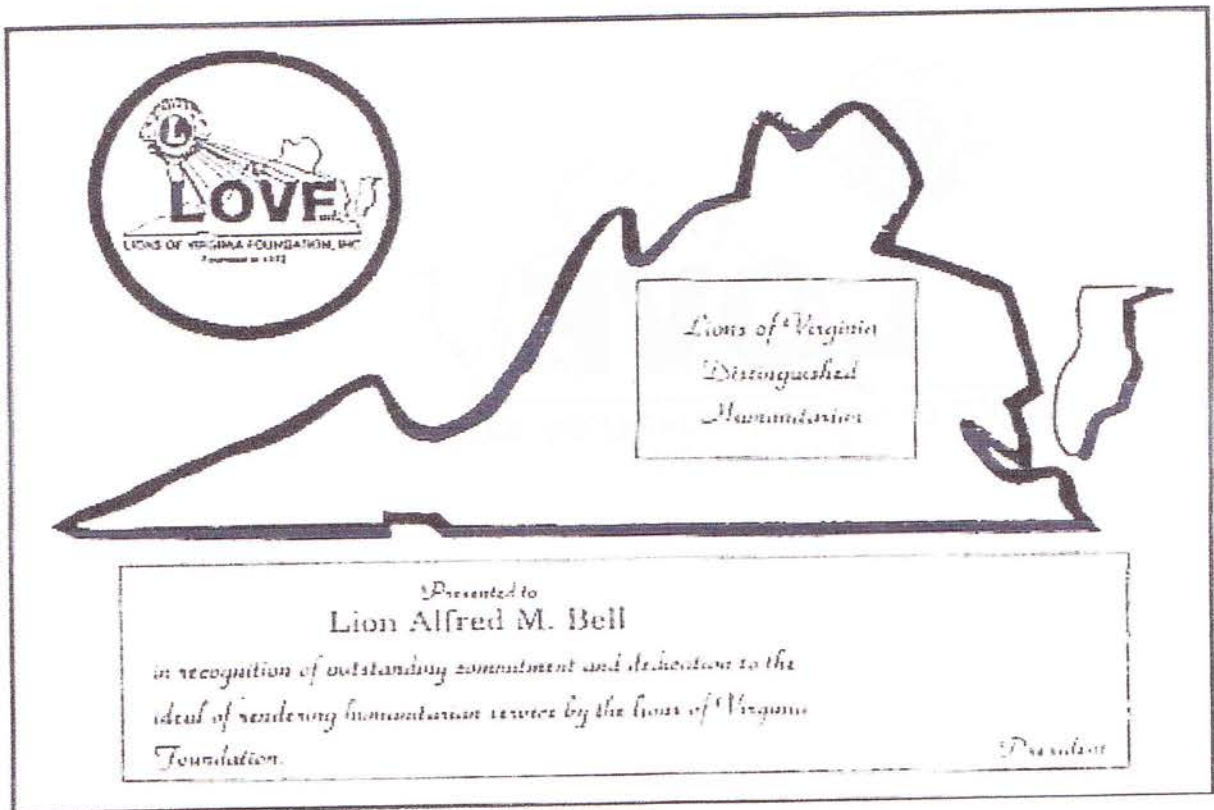 L
LOVE
LIONS OF VIRGINIA FOUNDATION, INC
Founded in
Lions of Virginia
Distinguished
Humanitarian
Presented to
Lion Alfred M. Bell
in recognition of outstanding commitment and dedication to the
ideal of rendering humanitarian service by the lions of Virginia
Foundation.
President